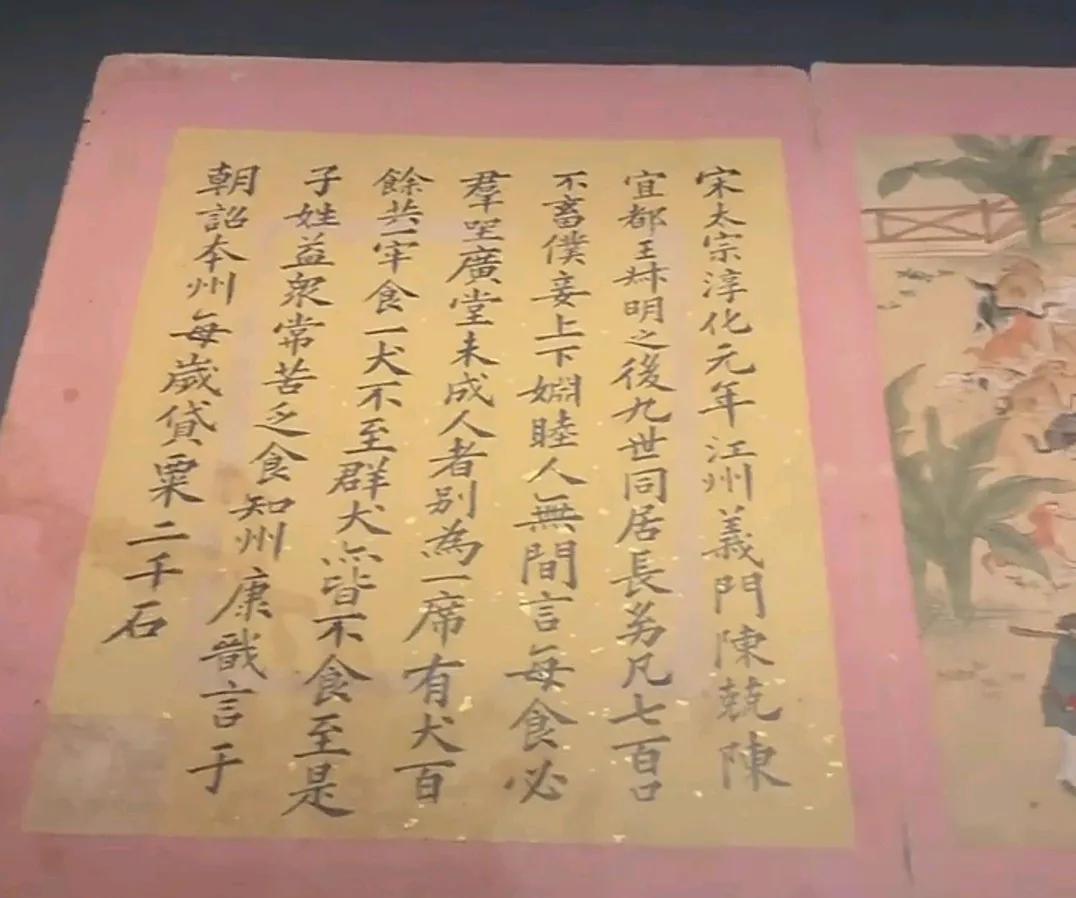 宋太宗淳化元年江州義門陳兢陳
宜都王叔明之後九世同居長㓜凡七百口
不畜僕妾上下婣睦人無間言每食必
羣坐廣堂未成人者别為一席有犬百
餘共一牢食一犬不至群犬亦皆不食至是
子姓益衆常苦乏食知州康戬言于
朝詔本州每歲貸粟二千石